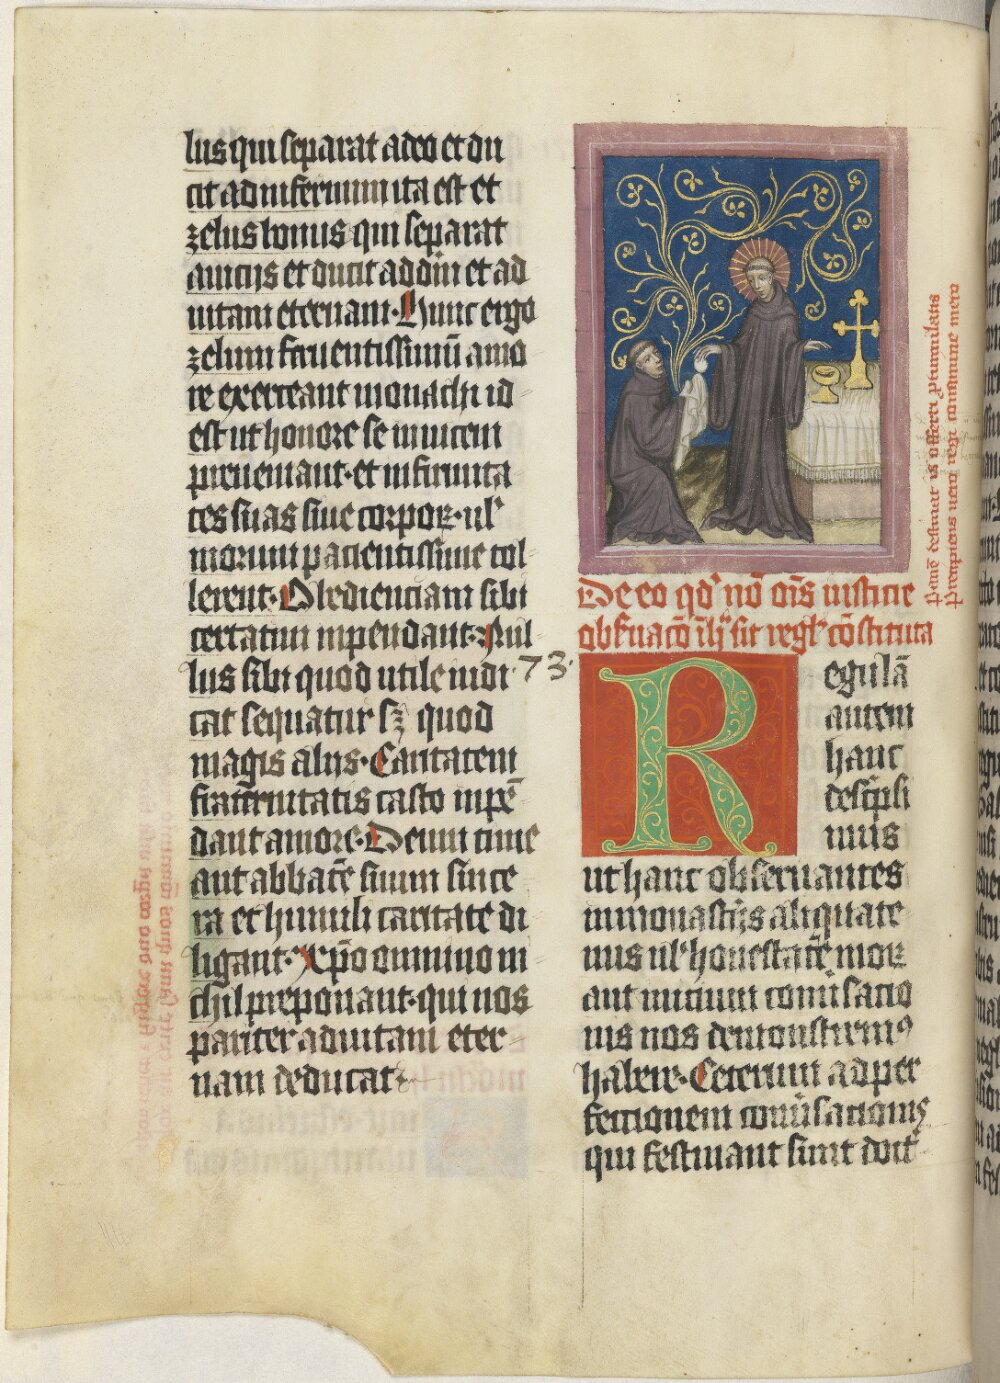 lus qui separat a deo et du
cit ad infernum ita est et
zelus bonus qui separat
a uicijs et ducit ad dn̄m et ad
uitam eternam· Hunc ergo
zelum feruentissimū amo
re exerceant monachi id
est ut honore se inuicem
preueniant· et infirmita
tes suas siue corporꝝ· ul'
morum pacientissime tol
lerent· Obedienciam sibi
certatim inpendant· Nul
lus sibi quod utile iudi
cat sequatur sꝫ quod
magis alijs· Caritatem
fraternitatis casto inpē
dant amore· Deum time
ant abbatē suum since
ra et humili caritate di
ligant· Xp̄o omnino ni
chil preponant· qui nos
pariter ad uitam eter
nam deducat
De eo qd' nō ōis iusticie
obseruacō ī h' sit regl' cōstituta
73·
Regulā
autem
hanc
descripsi
mus
ut hanc obseruantes
in monasterijs aliquate
nus ul' honestatē morꝝ
aut inicium conuersacio
nis nos demonstremꝰ
habere· Ceterum ad per
fectionem conuersacionis
qui festinant sunt doct'